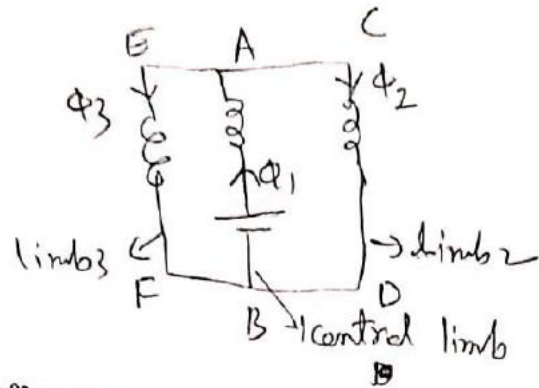 E A C
Φ3 Φ2
Φ1
limb3 limb2
F B D
central limb